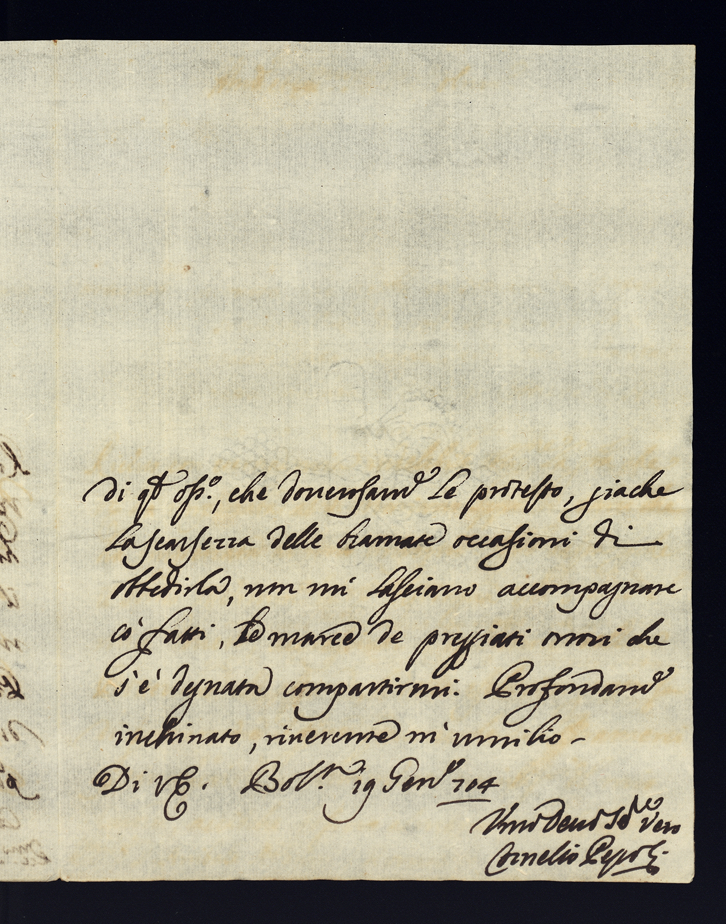 Di q.to oss.o, che doverosam.te Le protesto, giache
La scarsezza delle bramate occasioni di
obbedirla, non mi Lasciano accompagnare
co' fatti, le marce de pregiati onori che
s'è degnata compartirmi. Profondam.te
inchinato, riverente m'umilio -
Di VE. Bol.a 19 Gen.o 704
Vmo Devo Vero
Cornelio Pepoli